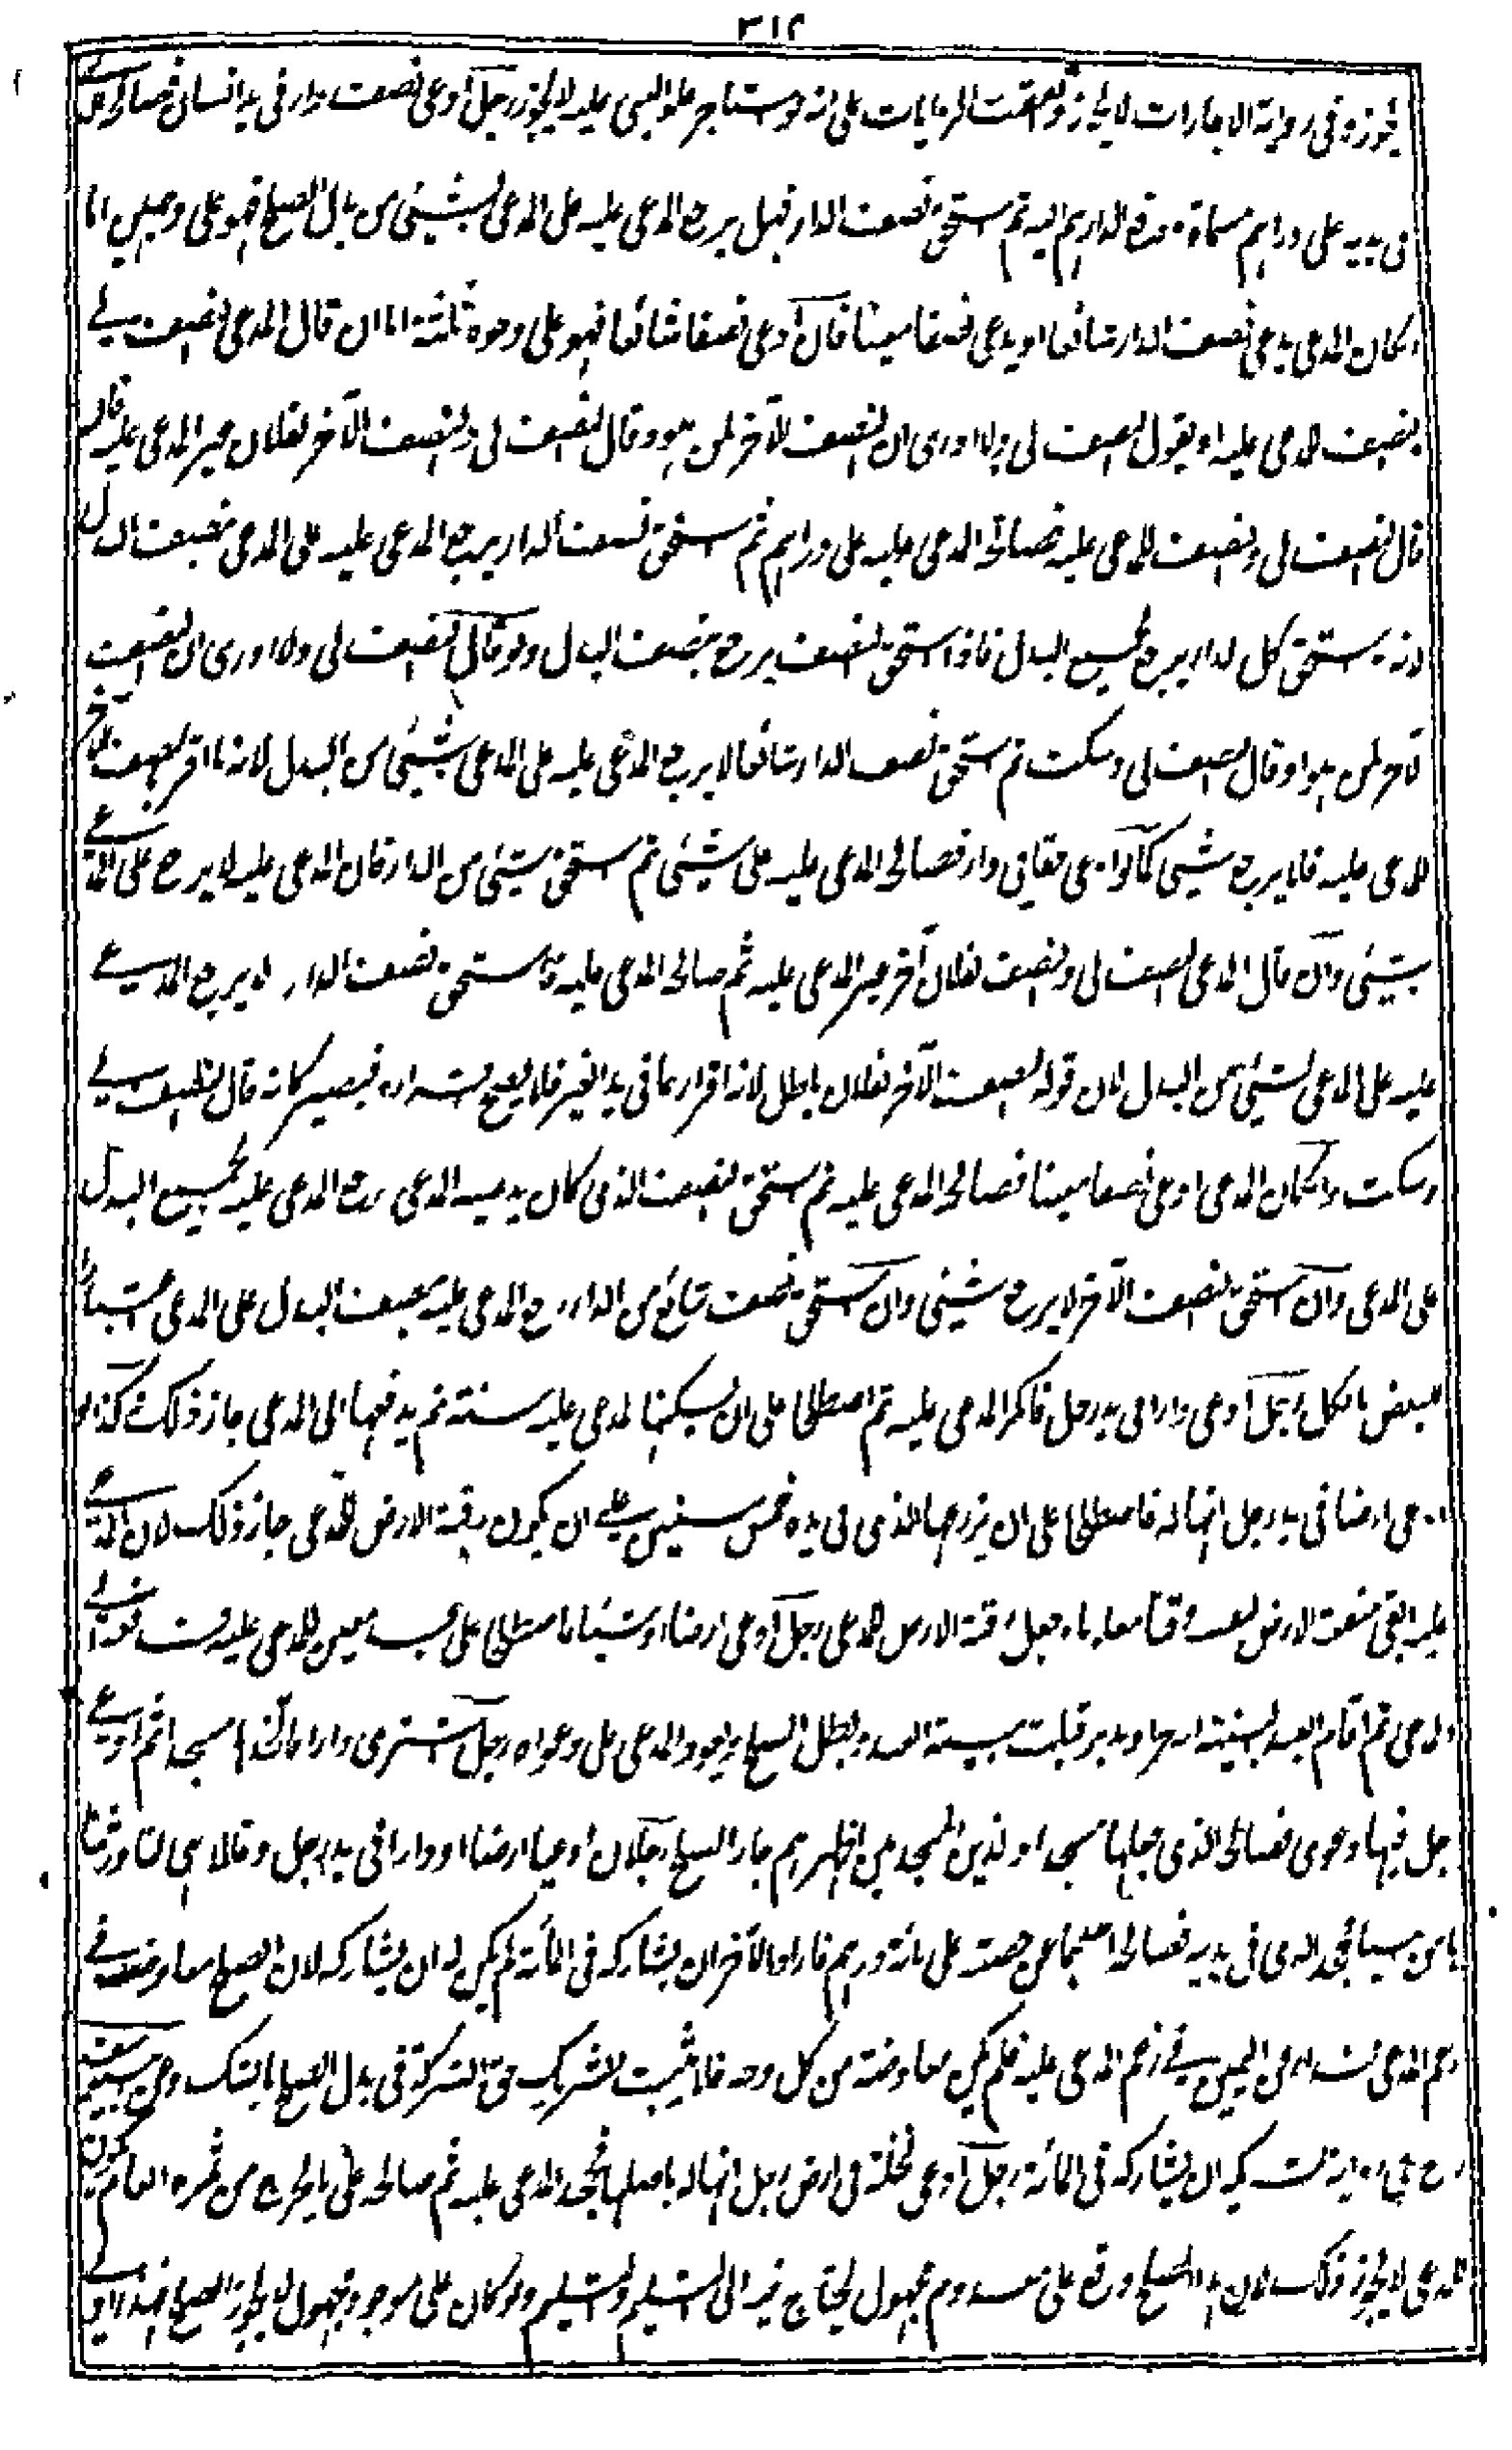 ٣١٢
يجوز وفى رواية الاجارات لا يجوز واتفقت الروايات على انه لو استاجر علوا ليبنى عليه لا يجوز رجل ادعى نصف دار فى يد انسان فصالح
فى يديه على دراهم مسماة ودفع الدراهم اليه ثم استحق نصف الدار قبل يرجع المدعى عليه على المدعى بشيئ من بدل الصلح فهو على وجهين اما
ان كان المدعى يدعى نصف الدار شائعا او يدعى نصفا معينا فان ادعى نصفا شائعا فهو على وجوه ثلثة اما ان قال المدعى النصف لى
والنصف للمدعى عليه او يقول النصف لى ولا ادرى ان النصف الآخر لمن هو او قال النصف لى والنصف الآخر لفلان غير المدعى عليه فان
قال النصف لى والنصف للمدعى عليه فصالح المدعى عليه على دراهم ثم استحق نصف الدار يرجع المدعى عليه على المدعى بنصف البدل
لانه لو استحق كل الدار يرجع بجميع البدل فاذا استحق النصف يرجع بنصف البدل ولو قال النصف لى ولا ادرى ان النصف
الآخر لمن هو او قال النصف لى وسكت ثم استحق نصف الدار شائعا لا يرجع المدعى عليه على المدعى بشيئ من البدل لانه ما اقر بالنصف الآخر
للمدعى عليه فلا يرجع بشيئ كما لو ادعى حقا فى دار فصالح المدعى عليه على شيئ ثم استحق شيئ من الدار فان المدعى عليه لا يرجع على المدعى
بشيئ وان قال المدعى النصف لى والنصف لفلان آخر غير المدعى عليه ثم صالح المدعى عليه فاستحق نصف الدار لا يرجع المدعى
عليه على المدعى بشيئ من البدل لان قوله النصف الآخر لفلان باطل لانه اقرار بما فى يد الغير فلا يصح اقراره فيصير كانه قال النصف لى
وسكت وان كان المدعى ادعى نصفا معينا فصالح المدعى عليه ثم استحق النصف الذى كان يدعيه المدعى رجع المدعى عليه بجميع البدل
على المدعى وان استحق النصف الآخر لا يرجع بشيئ وان استحق نصف شائع من الدار رجع المدعى عليه بنصف البدل على المدعى اعتبارا
للبعض بالكل رجل ادعى دارا فى يد رجل فانكر المدعى عليه ثم اصطلحا على ان يسكنها المدعى عليه سنة ثم يدفعها الى المدعى جاز ذلك وكذا لو
ادعى ارضا فى يد رجل انها له فاصطلحا على ان يزرعها الذى فى يده خمس سنين على ان يكون رقبة الارض للمدعى جاز ذلك لان المدعى
عليه ابقى منفعة الارض لنفسه وقتا معلوما وجعل رقبة الارض للمدعى رجل ادعى ارضا او شيئا فاصطلحا على عبد معين للمدعى عليه
المدعى ثم اقام العبد البينة انه حر او مدبر قبلت بينة العبد وبطل الصلح ويعود المدعى على دعواه رجل اشترى دارا فاتخذها مسجدا ثم ادعى
رجل فيها دعوى فصالح الذى جعلها مسجدا او الذين المسجد بين اظهرهم جاز الصلح رجلان ادعيا ارضا او دارا فى يد رجل وقالا هى لنا ورثناها
من ابينا فجحد الذى فى يديه فصالح احدهما عن حصته على مائة درهم فاراد الآخر ان يشاركه فى المائة لم يكن له ان يشاركه لان الصلح معاوضة فى
زعم المدعى فداء عن اليمين فى زعم المدعى عليه فلم يكن معاوضة من كل وجه فلا يثبت للشريك حق الشركة فى بدل الصلح بالشك وعن ابى يوسف
رح فى رواية له ان يشاركه فى المائة رجل ادعى نخلة فى ارض رجل انها له باصلها فجحد المدعى عليه ثم صالحه على ما يخرج من ثمرة العام يكون
للمدعى لا يجوز ذلك لان هذا الصلح وقع على معدوم مجهول يحتاج فيه الى التسليم والتسلم ولو كان على موجود مجهول لا يجوز الصلح